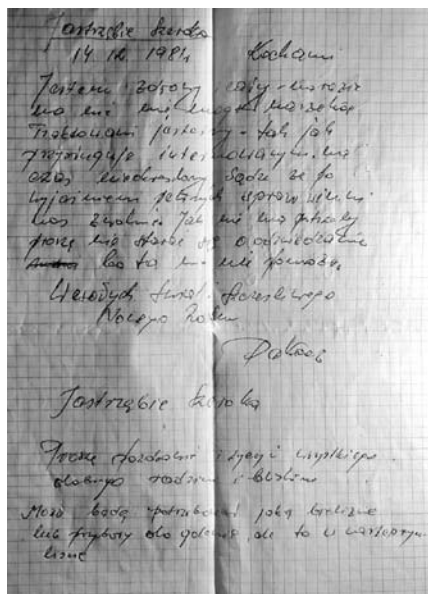 Jastrzębie Szeroka
14 12. 1981 Kochani
Jestem zdrowy cały - na razie
na nic nie mogę narzekać
Traktowani jesteśmy - tak jak
przysługuje internowanym. na
czas nieokreślony Sądzę że po
wyjaśnieniu pewnych spraw winni
nas zwolnić. Jak nie ma potrzeby
proszę nie starać się o odwiedzanie
bo to mi nie pomoże.
Wesołych Świąt i Szczęśliwego
Nowego Roku
Jastrzębie Szeroka
Proszę pozdrowić i życzyć wszystkiego
dobrego rodzinie i bliskim
Może będą potrzebować jaką bieliznę
lub przybory do golenia, ale to w następnym
liście